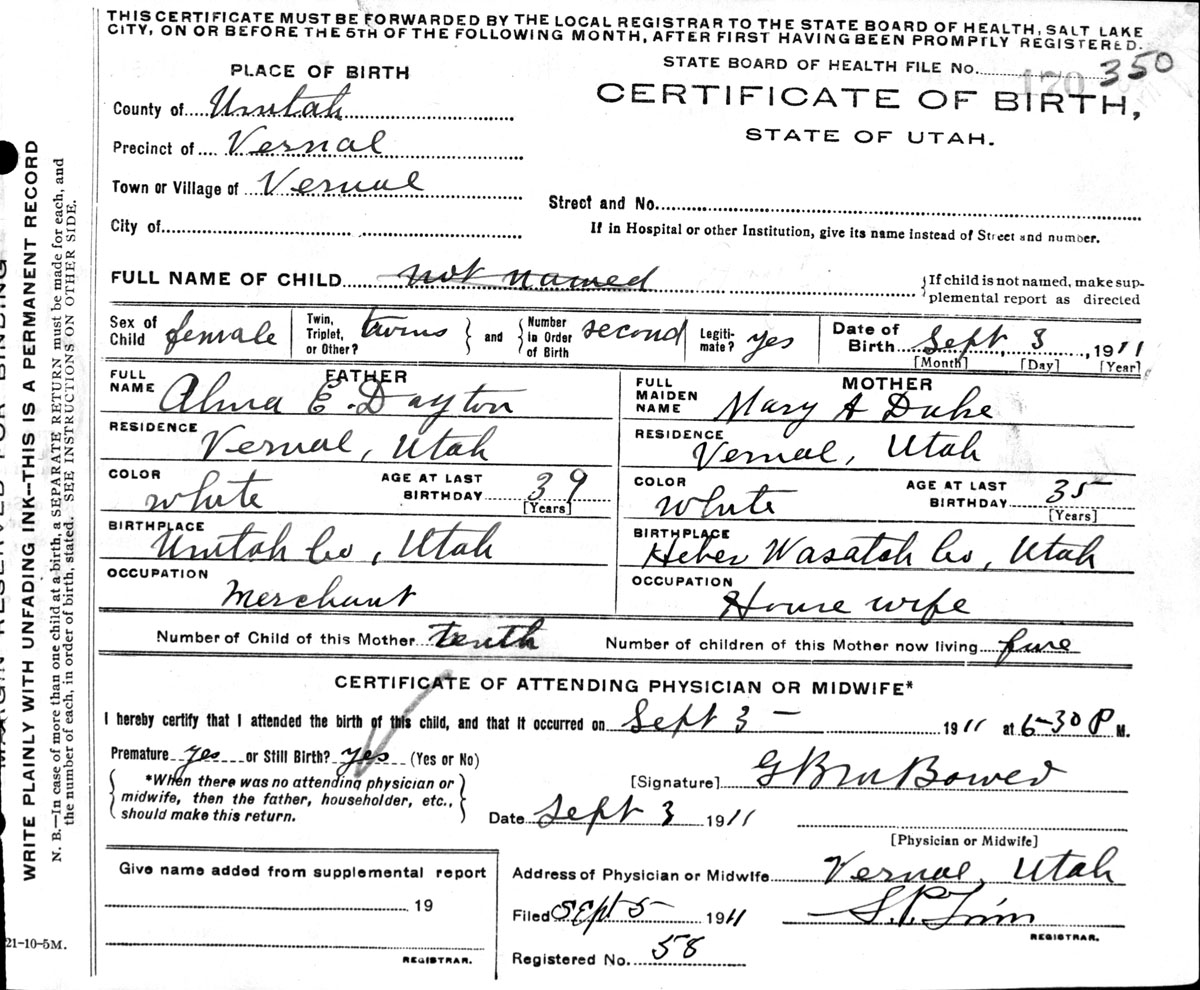 THIS CERTIFICATE MUST BE FORWARDED BY THE LOCAL REGISTRAR TO THE STATE BOARD OF HEALTH, SALT LAKE
CITY, ON OR BEFORE THE 5TH OF THE FOLLOWING MONTH, AFTER FIRST HAVING BEEN PROMPTLY REGISTERED.
STATE BOARD OF HEALTH FILE No. 170 350
PLACE OF BIRTH
CERTIFICATE OF BIRTH,
STATE OF UTAH.
County of Uintah
Precinct of Vernal
Town or Village of Vernal
Street and No.
City of
If in Hospital or other Institution, give its name instead of Street and number.
FULL NAME OF CHILD not named
If child is not named, make sup-
plemental report as directed
Sex of Child female
Twin, Triplet, or Other? twins
and
Number in Order of Birth second
Legiti-mate? yes
Date of Birth Sept, 3, 1911
[Month] [Day] [Year]
FATHER
FULL NAME Alma E. Dayton
MOTHER
FULL MAIDEN NAME Mary A Duke
RESIDENCE Vernal, Utah
RESIDENCE Vernal, Utah
COLOR white
AGE AT LAST BIRTHDAY 39
[Years]
COLOR white
AGE AT LAST BIRTHDAY 35
[Years]
BIRTHPLACE Uintah Co, Utah
BIRTHPLACE Heber Wasatch Co, Utah
OCCUPATION Merchant
OCCUPATION House wife
Number of Child of this Mother tenth
Number of children of this Mother now living five
CERTIFICATE OF ATTENDING PHYSICIAN OR MIDWIFE*
I hereby certify that I attended the birth of this child, and that it occurred on Sept 3 — 1911 at 6-30 P M.
Premature yes or Still Birth? yes (Yes or No)
*When there was no attending physician or
midwife, then the father, householder, etc.,
should make this return.
[Signature]
Date Sept 3 1911
[Physician or Midwife]
Give name added from supplemental report
19
REGISTRAR.
Address of Physician or Midwife Vernal, Utah
Filed Sept 5 1911
REGISTRAR.
Registered No. 58
21-10-5M.
MARGIN RESERVED FOR BINDING
WRITE PLAINLY WITH UNFADING INK—THIS IS A PERMANENT RECORD
N. B.—In case of more than one child at a birth, a SEPARATE RETURN must be made for each, and
the number of each, in order of birth, stated. SEE INSTRUCTIONS ON OTHER SIDE.